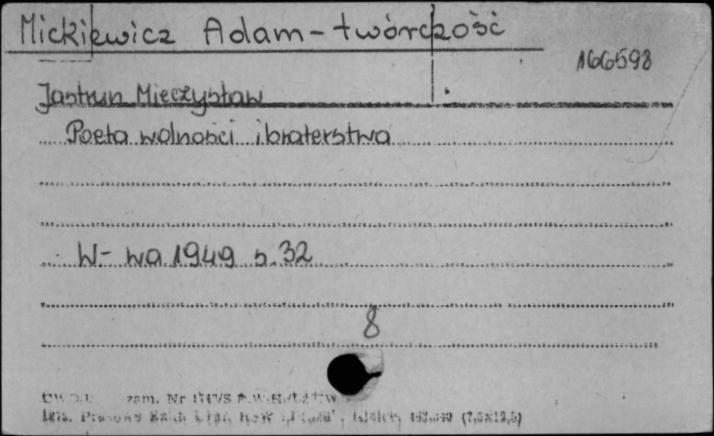 Mickiewicz Adam - twórczość
166598
Jastrun Mieczysław
Poeta wolności i braterstwa
W-wa 1949 s. 32
8
zam. Nr
(7,5x12,5)